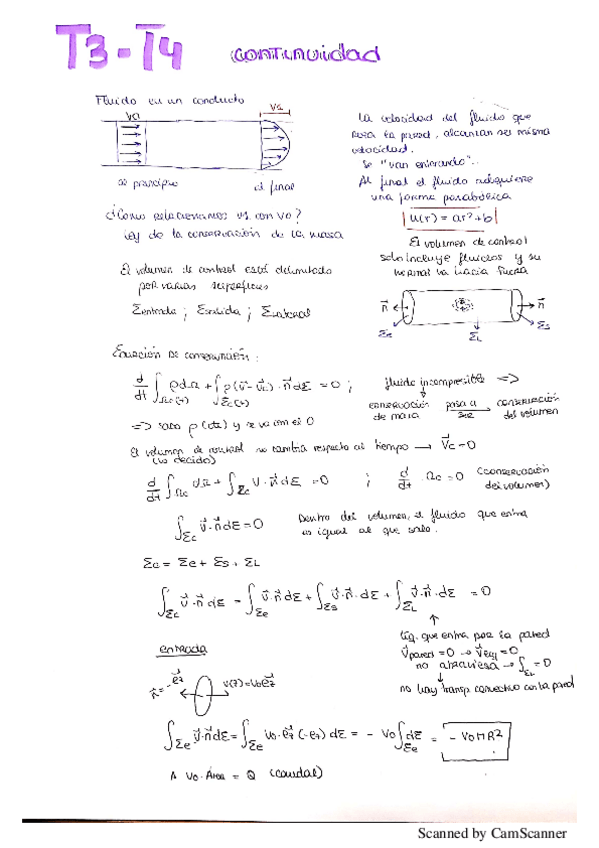 T3-T4 continuidad
Fluido en un conducto
Vo
Vs
se principio
al final
La velocidad del fluido que
roza la pared, alcanzan su misma
velocidad.
Se "van enterando"..
Al final el fluido adquiere
una forma parabólica
u(r) = ar²+b
¿Cómo relacionamos vs con vo?
Ley de la conservación de la masa
El volumen de control
solo incluye fluidos y su
normal va hacia fuera
El volumen de control está delimitado
por varias superficies
Σentrada ; Σsalida ; Σlateral
n⃗ n⃗
Σe ΣL Σs
Ecuación de conservación :
d/dt ∫Ωc(t) ρdΩ + ∫Σc(t) ρ(v⃗-v⃗c)·n⃗dΣ = 0 ; fluido incompresible =>
conservación de masa pasa a ser conservación del volumen
=> saco ρ (cte) y se va con el 0
El volumen de control no cambia respecto al tiempo → V⃗c=0
(lo decido)
d/dt ∫Ωc dΩ + ∫Σc V·n⃗dΣ = 0 ; d/dt Ωc = 0 (conservación del volumen)
∫Σc v⃗·n⃗dΣ=0 Dentro del volumen, el fluido que entra
es igual al que sale.
Σc = Σe + Σs + ΣL
∫Σc v⃗·n⃗ dΣ = ∫Σe v⃗·n⃗ dΣ + ∫Σs v⃗·n⃗dΣ + ∫ΣL v⃗·n⃗ dΣ = 0
↑
liq. que entra por la pared
V⃗pared = 0 → V⃗ = 0
no atraviesa → ∫ΣL = 0
no hay transp. convectivo con la pared
entrada
n⃗=-e⃗z v(z)=Voe⃗z
∫Σe v⃗·n⃗dΣ = ∫Σe Vo·e⃗z (-e⃗z) dΣ = - Vo ∫Σe dΣ = - VoπR²
Vo·Área = Q (caudal)
Scanned by CamScanner